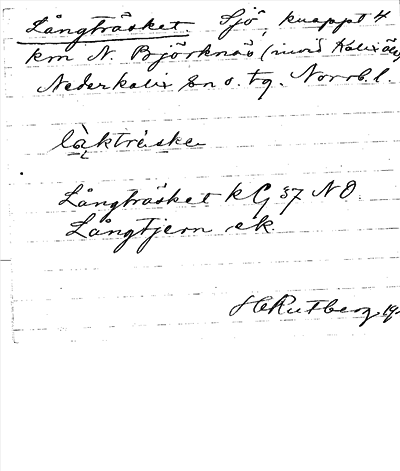 Långträsket. Sjö, knappt 4
km N. Björknäs (invid Kalix älv)
Nederkalix sn o. tg. Norrb. l.
làktrèske
Långträsket kG 37 NO.
Långtjern ek.
H Rutberg 19